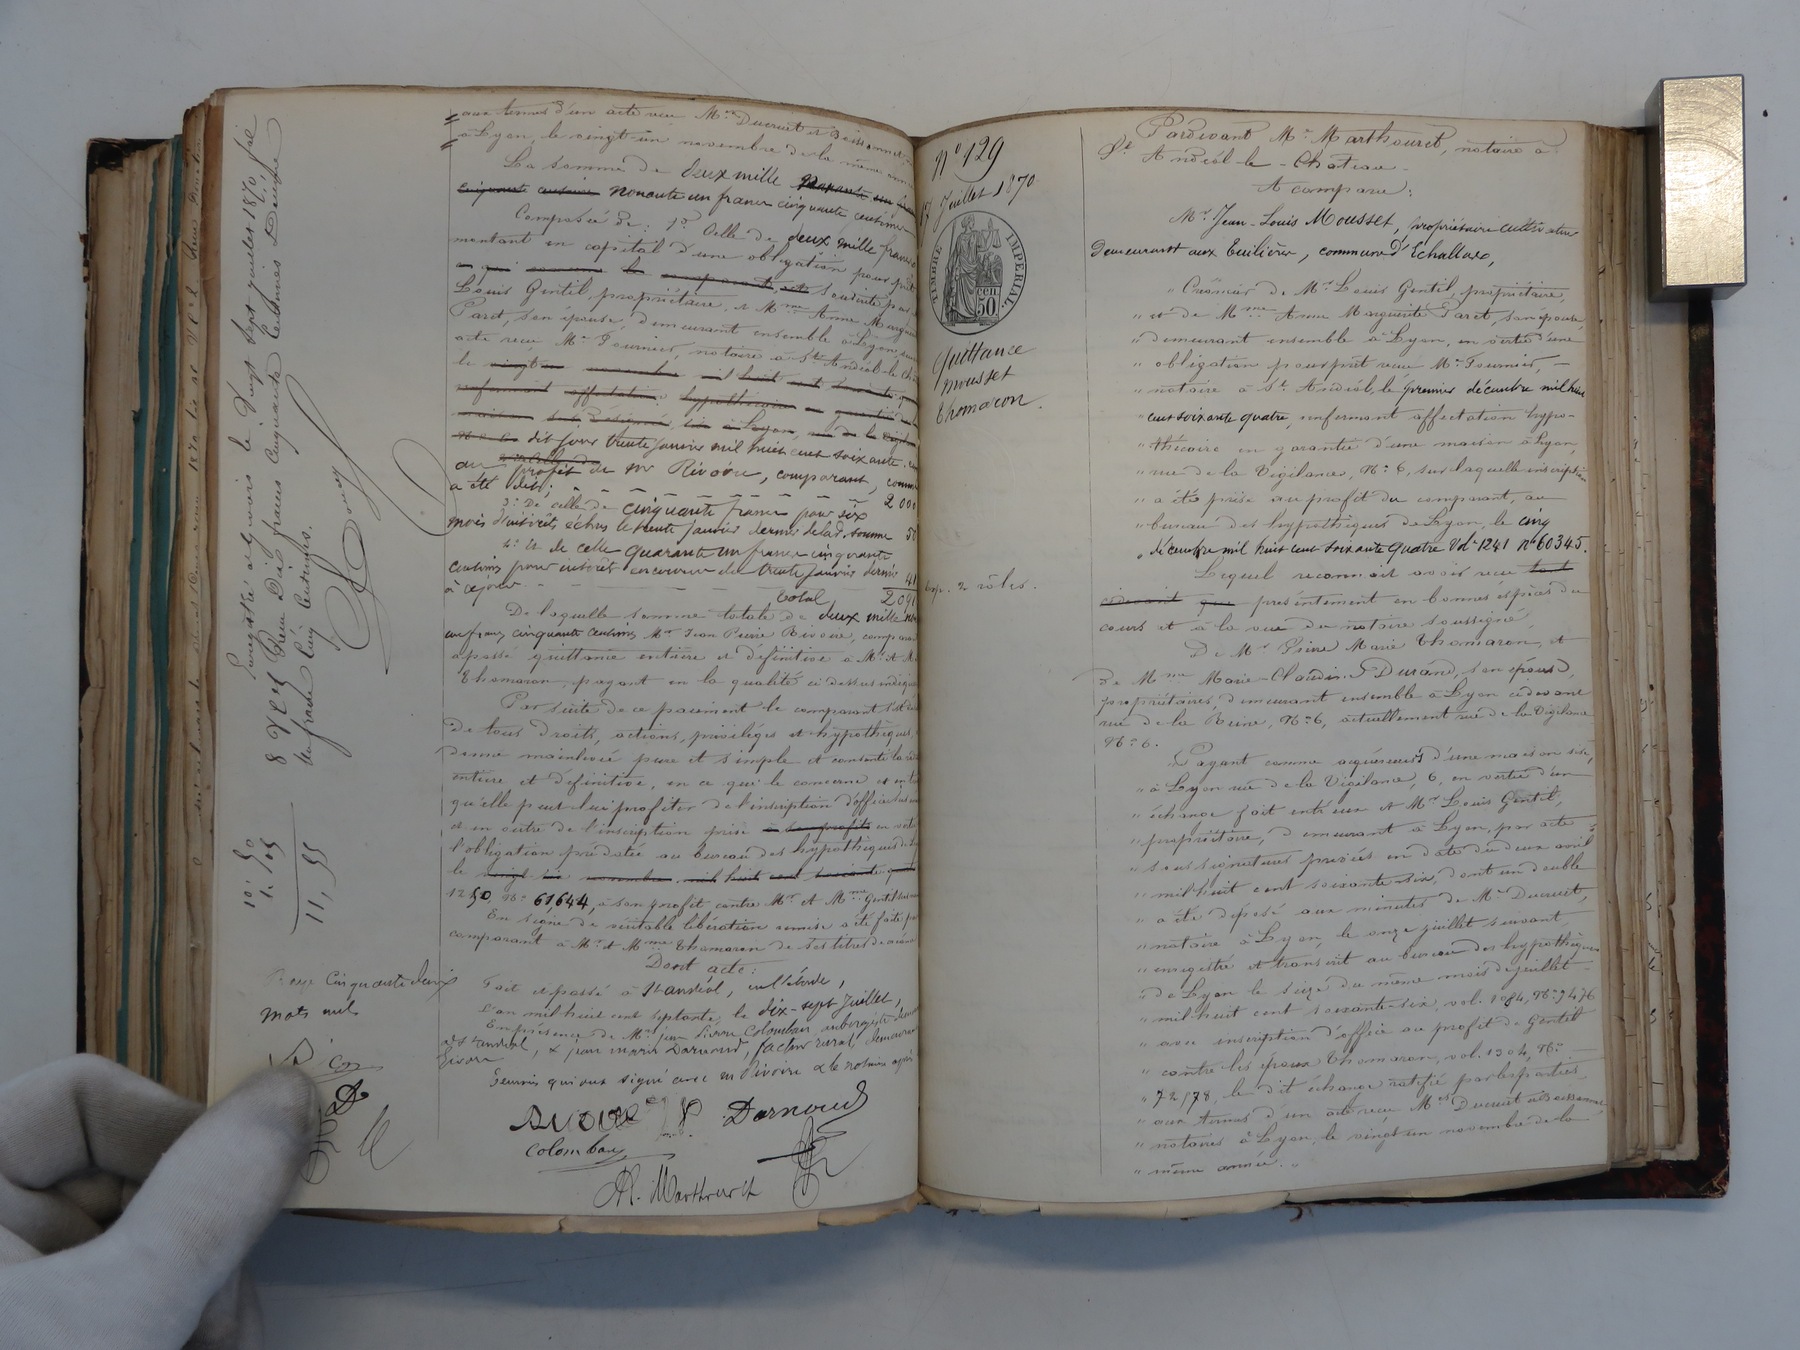 aux termes d'un acte reçu Mes Ducruet et Boissonnet
à Lyon, le vingt-un novembre de la même année
La somme de deux mille
nonante un francs cinquante centimes
Composée de : 1º Celle de deux mille francs
montant en capital d'une obligation pour prêt
souscrite par
Louis Gentil, propriétaire, et Mme Anne Marguerite
Paret, son épouse, demeurant ensemble à Lyon, suivant
acte reçu Me Fournier, notaire à St Andéol-le-Château
le vingt un novembre mil huit cent soixante
renfermant affectation hypothécaire en garantie d'une
maison sise à Lyon, rue de la Vigilance
Nº 6 dit jour trente janvier mil huit cent soixante
au profit de Mr Rivoire, comparant, comme
a été dit; 2 000
2º De celle de cinquante francs pour six
mois d'intérêts échus le trente janvier dernier de lad. somme 50
3º Et de celle quarante un francs cinquante
centimes pour intérêts en cours du trente janvier dernier
à ce jour 41
Total 2091
De laquelle somme totale de deux mille nonante
un francs cinquante centimes Mr Jean Pierre Rivoire, comparant
a passé quittance entière et définitive à Mr et Mme
Thomaron, payant en la qualité ci dessus indiquée
Par suite de ce paiement le comparant s'est désisté
de tous droits, actions, privilèges et hypothèques,
donné mainlevée pure et simple et consenti la radiation
entière et définitive, en ce qui le concerne et en ce
qu'elle peut lui profiter de l'inscription d'office
et en outre de l'inscription prise à son profit en vertu
l'obligation prédatée au bureau des hypothèques de Lyon
le vingt six novembre mil huit cent soixante quatre
1250, Nº 61,644, à son profit contre Mr et Mme Gentil
En signe de véritable libération remise a été faite par
comparant à Mr et Mme Thomaron de ses titres de créance
Dont acte :
Fait et passé à St andéol, en l'étude,
L'an mil huit cent septante, le dix-sept Juillet,
En présence de Mrs jean Pierre Colombau aubergiste demeurant
à St andéol, & jean marie Darnoud, facteur rural demeurant
Givors
Témoins qui ont signé avec m Rivoire & le notaire après
Rivoire Darnoud
Colombau
A. Marthouret
Enregistré à Givors le Vingt Sept juillet 1870, folio
8 Reçu Dix francs Cinquante Centimes Décime
un franc Cinq Centimes.
10, 50
1, 05
11, 55
Rayé Cinquante deux
mots nuls
Nº 129
17 Juillet 1870
TIMBRE IMPÉRIAL
50 CEN.
Quittance
Mousset
Thomaron.
Exp. 2 rôles.
Pardevant Me Marthouret, notaire à
St Andéol-le-Château
A comparu :
Mr Jean-Louis Mousset, propriétaire cultivateur
demeurant aux Tuilières, commune d'Echallas,
" Créancier de Mr Louis Gentil, propriétaire,
" et de Mme Anne Marguerite Paret, son épouse,
" demeurant ensemble à Lyon, en vertu d'une
" obligation pour prêt reçue Me Fournier, —
" notaire à St Andéol, le premier décembre mil huit
" cent soixante quatre, renfermant affectation hypo-
" thécaire en garantie d'une maison à Lyon,
" rue de la Vigilance, Nº 6, sur laquelle inscription
" a été prise au profit du comparant, au
" bureau des hypothèques de Lyon, le cinq
" décembre mil huit cent soixante quatre Vol 1241 nº 60345.
Lequel reconnait avoir reçu tout
cidevant que présentement en bonnes espèces du
cours et à la vue du notaire soussigné,
De Mr Pierre Marie Thomaron, et
de Mme Marie-Claudine Durand, son épouse,
propriétaires, demeurant ensemble à Lyon cidevant
rue de la Reine, Nº 6, actuellement rue de la Vigilance
Nº 6.
" Payant comme acquéreurs d'une maison sise,
" à Lyon rue de la Vigilance, 6, en vertu d'un
" échange fait entr'eux et Mr Louis Gentil,
" propriétaire, demeurant à Lyon, par acte
" sous signatures privées en date du deux avril
" mil huit cent soixante six, dont un double
" a été déposé aux minutes de Me Ducruet,
" notaire à Lyon, le onze juillet suivant
" enregistré et transcrit au bureau des hypothèques
" de Lyon le seize du même mois de juillet
" mil huit cent soixante six, vol. 1084, Nº 9476
" avec inscription d'office au profit de Gentil
" contre les époux Thomaron, vol. 1304, Nº
" 72178, le dit échange ratifié par les parties
" aux termes d'un acte reçu Mes Ducruet et Boissonnet,
" notaires à Lyon, le vingt un novembre de la
" même année.